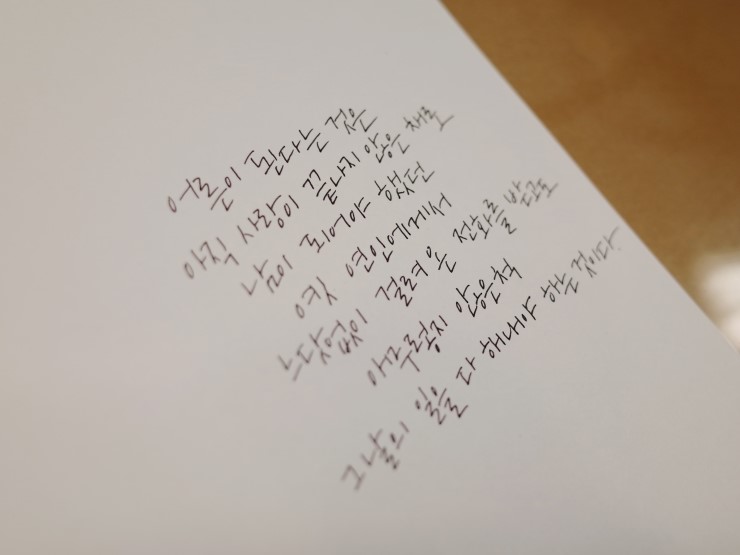 어른이 된다는 것은
아직 사랑이 끝나지 않은 채로
남이 되어야 했던
옛 연인에게서
느닷없이 걸려온 전화를 받고도
아무렇지 않은척
그날의 일을 다 해내야 하는 것이다.